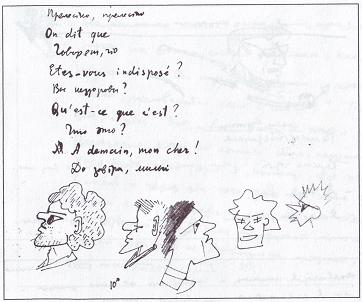 Прелестно, прелестно
On dit que
Говорят, что
Etes-vous indisposé ?
Вы нездоровы ?
Qu'est-ce que c'est ?
Что это ?
A demain, mon cher !
До завтра, милый
10°